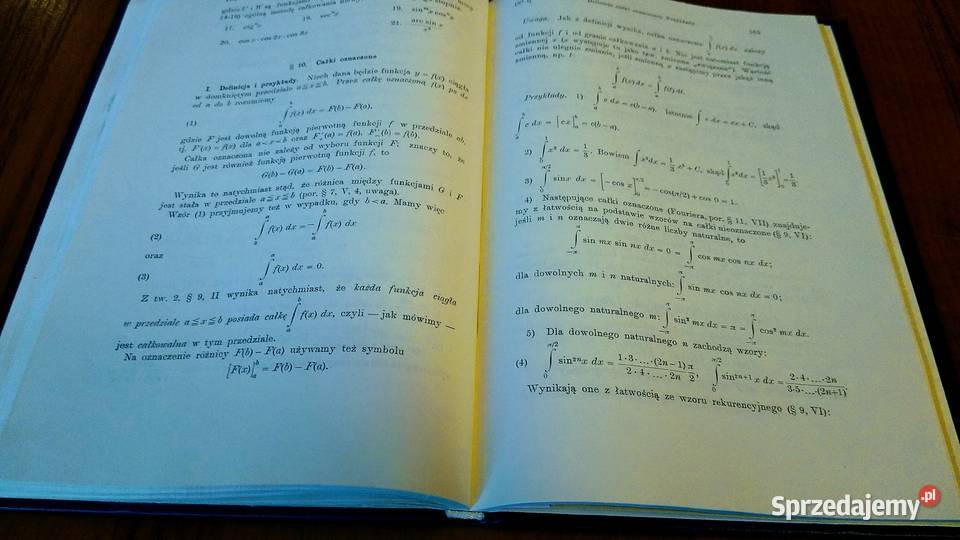 gdzie U i W są funkcjami
ogólną metodę całkowania
17. ctg⁴x
18. sec⁴x
19. sinᵐx cosⁿx
20. cos x · cos 2x · cos 3x
21. arc sin x / x²
§ 10. Całki oznaczone
1. Definicja i przykłady. Niech dana będzie funkcja y = f(x) ciągła
w domkniętym przedziale a≦x≦b. Przez całkę oznaczoną f(x) po dx
od a do b rozumiemy
(1) ∫ₐᵇ f(x) dx = F(b) − F(a),
gdzie F jest dowolną funkcją pierwotną funkcji f w przedziale ab,
tj. F′(x) = f(x) dla a<x<b oraz F′₊(a) = f(a), F′₋(b) = f(b).
Całka oznaczona nie zależy od wyboru funkcji F; znaczy to, że
jeśli G jest również funkcją pierwotną funkcji f, to
G(b) − G(a) = F(b) − F(a).
Wynika to natychmiast stąd, że różnica między funkcjami G i F
jest stała w przedziale a≦x≦b (por. § 7, V, 4, uwaga).
Wzór (1) przyjmujemy też w wypadku, gdy b<a. Mamy więc
(2) ∫ᵇₐ f(x) dx = −∫ₐᵇ f(x) dx
oraz
(3) ∫ₐᵃ f(x) dx = 0.
Z tw. 2, § 9, II wynika natychmiast, że każda funkcja ciągła
w przedziale a≦x≦b posiada całkę ∫ₐᵇ f(x) dx, czyli — jak mówimy —
jest całkowalna w tym przedziale.
Na oznaczenie różnicy F(b) − F(a) używamy też symbolu
[F(x)]ₐᵇ = F(b) − F(a).
165
Uwaga. Jak z definicji wynika, całka oznaczona ∫ₐᵇ f(x) dx zależy
od funkcji f i od granic całkowania a i b. Nie jest natomiast funkcją
zmiennej x (x występuje tu jako tzw. zmienna „związana"). Wartość
całki nie ulegnie zmianie, jeśli zmienną x zastąpimy przez jakąś inną
zmienną, np. t:
∫ₐᵇ f(x) dx = ∫ₐᵇ f(t) dt.
Przykłady. 1) ∫ₐᵇ c dx = c(b−a). Istotnie ∫ c dx = cx + C, skąd
∫ₐᵇ c dx = [cx]ₐᵇ = c(b−a).
2) ∫₀¹ x² dx = 1/3. Bowiem ∫ x² dx = 1/3 x³ + C, skąd ∫₀¹ x² dx = [1/3 x³]₀¹ = 1/3.
3) ∫₀^(π/2) sin x dx = [−cos x]₀^(π/2) = −cos(π/2) + cos 0 = 1.
4) Następujące całki oznaczone (Fouriera, por. § 11, VII) znajduje-
my z łatwością na podstawie wzorów na całki nieoznaczone (§ 9, VI):
jeśli m i n oznaczają dwie różne liczby naturalne, to
∫₋π^π sin mx sin nx dx = 0 = ∫₋π^π cos mx cos nx dx;
dla dowolnych m i n naturalnych: ∫₋π^π sin mx cos nx dx = 0;
dla dowolnego naturalnego m: ∫₋π^π sin² mx dx = π = ∫₋π^π cos² mx dx.
5) Dla dowolnego naturalnego n zachodzą wzory:
(4) ∫₀^(π/2) sin²ⁿx dx = 1·3·...·(2n−1)/2·4·...·2n π/2, ∫₀^(π/2) sin²ⁿ⁺¹x dx = 2·4·...·2n/3·5·...·(2n+1)
Wynikają one z łatwością ze wzoru rekurencyjnego (§ 9, VI):
Sprzedajemy.pl